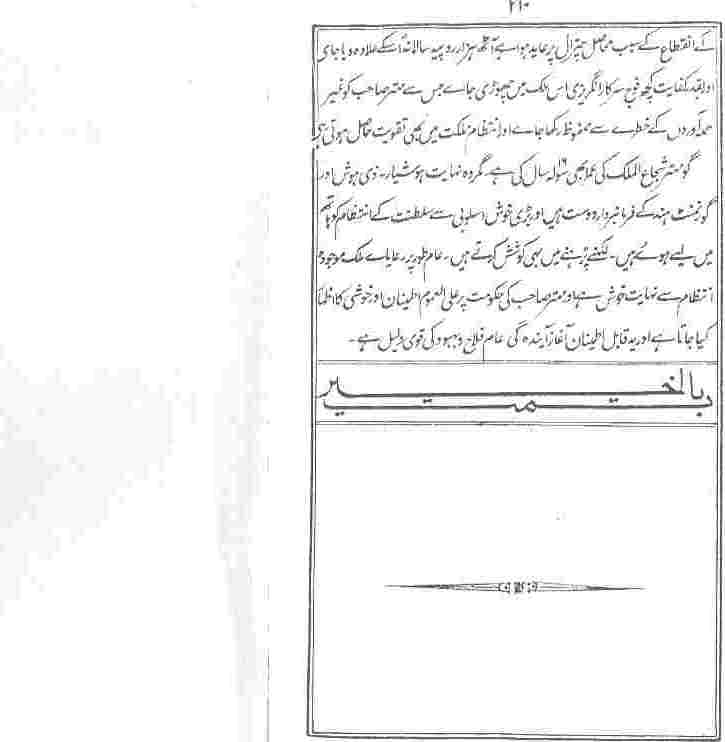 ۲۱۰
کے انقطاع کے سبب محاصل چترال پر عاید ہوا ہے آٹھ ہزار روپیہ سالانہ اسکے علاوہ دیا جای
اور بقدر کفایت کچھ فوج سرکار انگریزی اس ملک میں چھوڑی جاے جس سے مہتر صاحب کو غیر
حملہ آوردں کے خطرے سے محفوظ رکھا جاے اور انتظام مملکت میں بھی تقویت حاصل ہوتی رہے
گو مہتر شجاع الملک کی عمر ابھی سولہ سال کی ہے۔ مگر وہ نہایت ہوشیار۔ ذی ہوش اور
گورنمنٹ ہند کے فرمانبردار دوست ہیں اور بڑی خوش اسلوبی سے سلطنت کے انتظام کو ہاتھ
میں لیے ہوئے ہیں۔ لکھنے پڑہنے میں بہی کوشش کرتے ہیں۔ عام طور پر رعایاے ملک موجودہ
انتظام سے نہایت خوش ہے اور مہتر صاحب کی حکومت پر علی العموم اطمینان اور خوشی کا اظہار
کیا جاتا ہے اور یہ قابل اطمینان آغاز آیندہ کی عام فلاح و بہبود کی قوی دلیل ہے۔
بالخیر